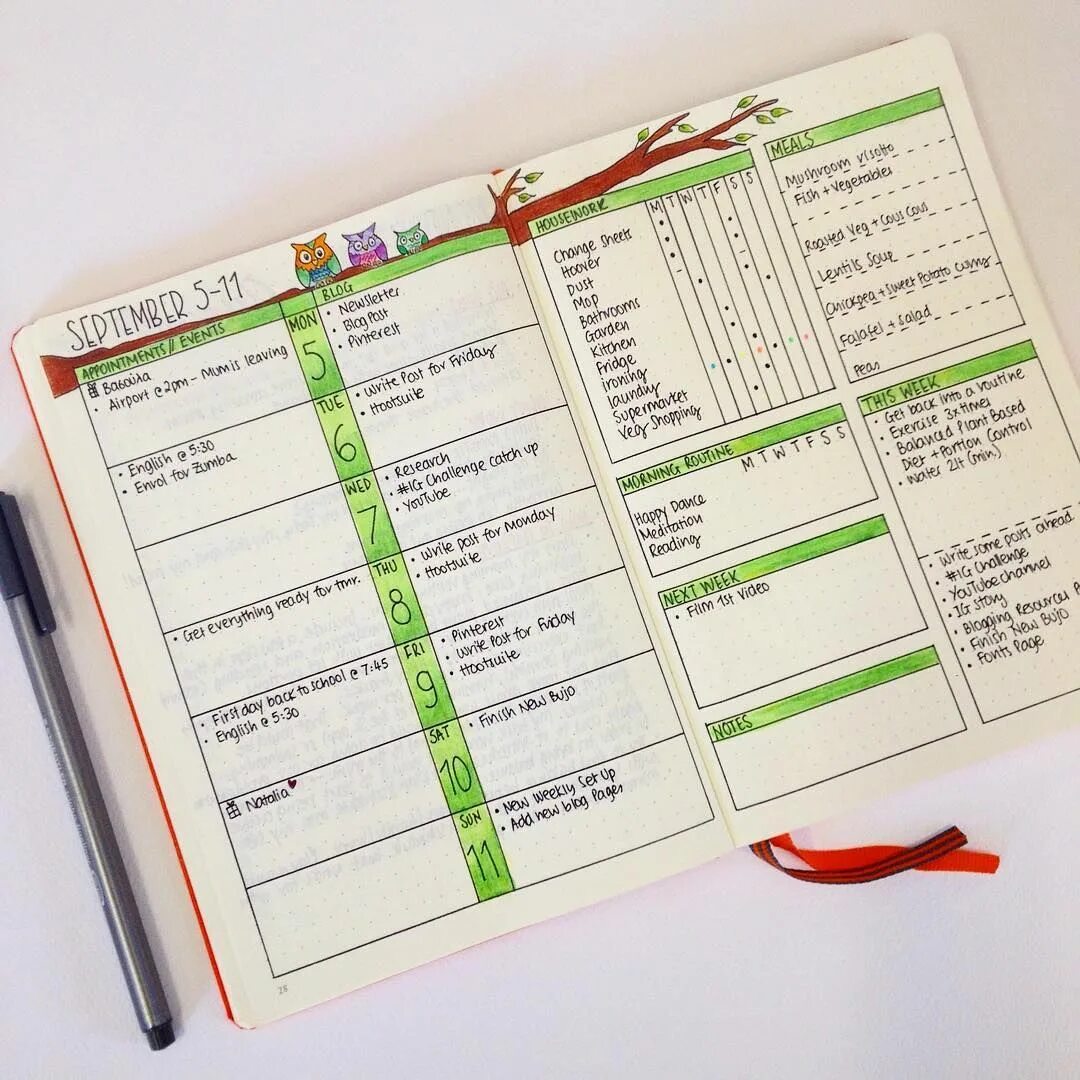 SEPTEMBER 5-11
APPOINTMENTS // EVENTS
BLOG
MON
5
Βασούλα
• Airport @ 2pm - Mum is leaving
• Newsletter
• Blog Post
• Pinterest
TUE
6
• English @ 5:30
• Enrol for Zumba
• Write Post for Friday
• Hootsuite
WED
7
• Research
• #IG Challenge catch up
• YouTube
THU
8
• Get everything ready for tmr.
• Write post for Monday
• Hootsuite
FRI
9
• First day back to school @ 7:45
• English @ 5:30
• Pinterest
• Write Post for Friday
• Hootsuite
SAT
10
Natalia
• Finish New Bujo
SUN
11
• New Weekly Set Up
• Add new blog Pages
28
HOUSEWORK
M T W T F S S
Change Sheets
Hoover
Dust
Mop
Bathrooms
Garden
Kitchen
Fridge
ironing
laundry
Supermarket
Veg Shopping
MORNING ROUTINE
M T W T F S S
Happy Dance
Meditation
Reading
NEXT WEEK
• Film 1st Video
NOTES
MEALS
Mushroom risotto
Fish + Vegetables
Roasted Veg + Cous Cous
Lentils Soup
Chickpea + Sweet Potato Curry
Falafel + Salad
Peas
THIS WEEK
• Get back into a routine
• Exercise 3x times
• Balanced Plant Based
Diet + Portion Control
• Water 2lt (min)
• Write some posts ahead
• #IG Challenge
• YouTube channel
• IG Story
• Blogging Resources
• Finish New Bujo
• Fonts Page